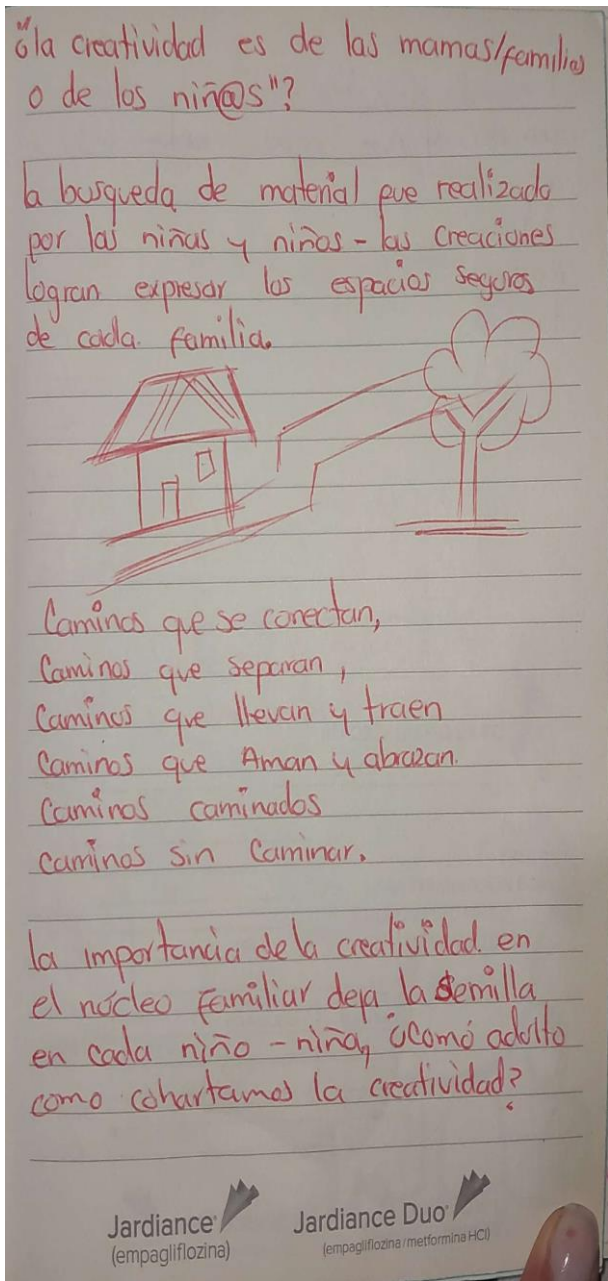 "¿la creatividad es de las mamas/familias
o de los niñ@s"?
la busqueda de material fue realizado
por las niñas y niños - las creaciones
logran expresar los espacios seguros
de cada familia.
Caminos que se conectan,
Caminos que separan,
Caminos que llevan y traen
Caminos que Aman y abrazan.
Caminos caminados
caminos sin Caminar.
la importancia de la creatividad en
el núcleo Familiar deja la Semilla
en cada niño - niña, ¿comó adulto
como cohartamos la creatividad?
Jardiance®
(empagliflozina)
Jardiance Duo®
(empagliflozina/metformina HCl)